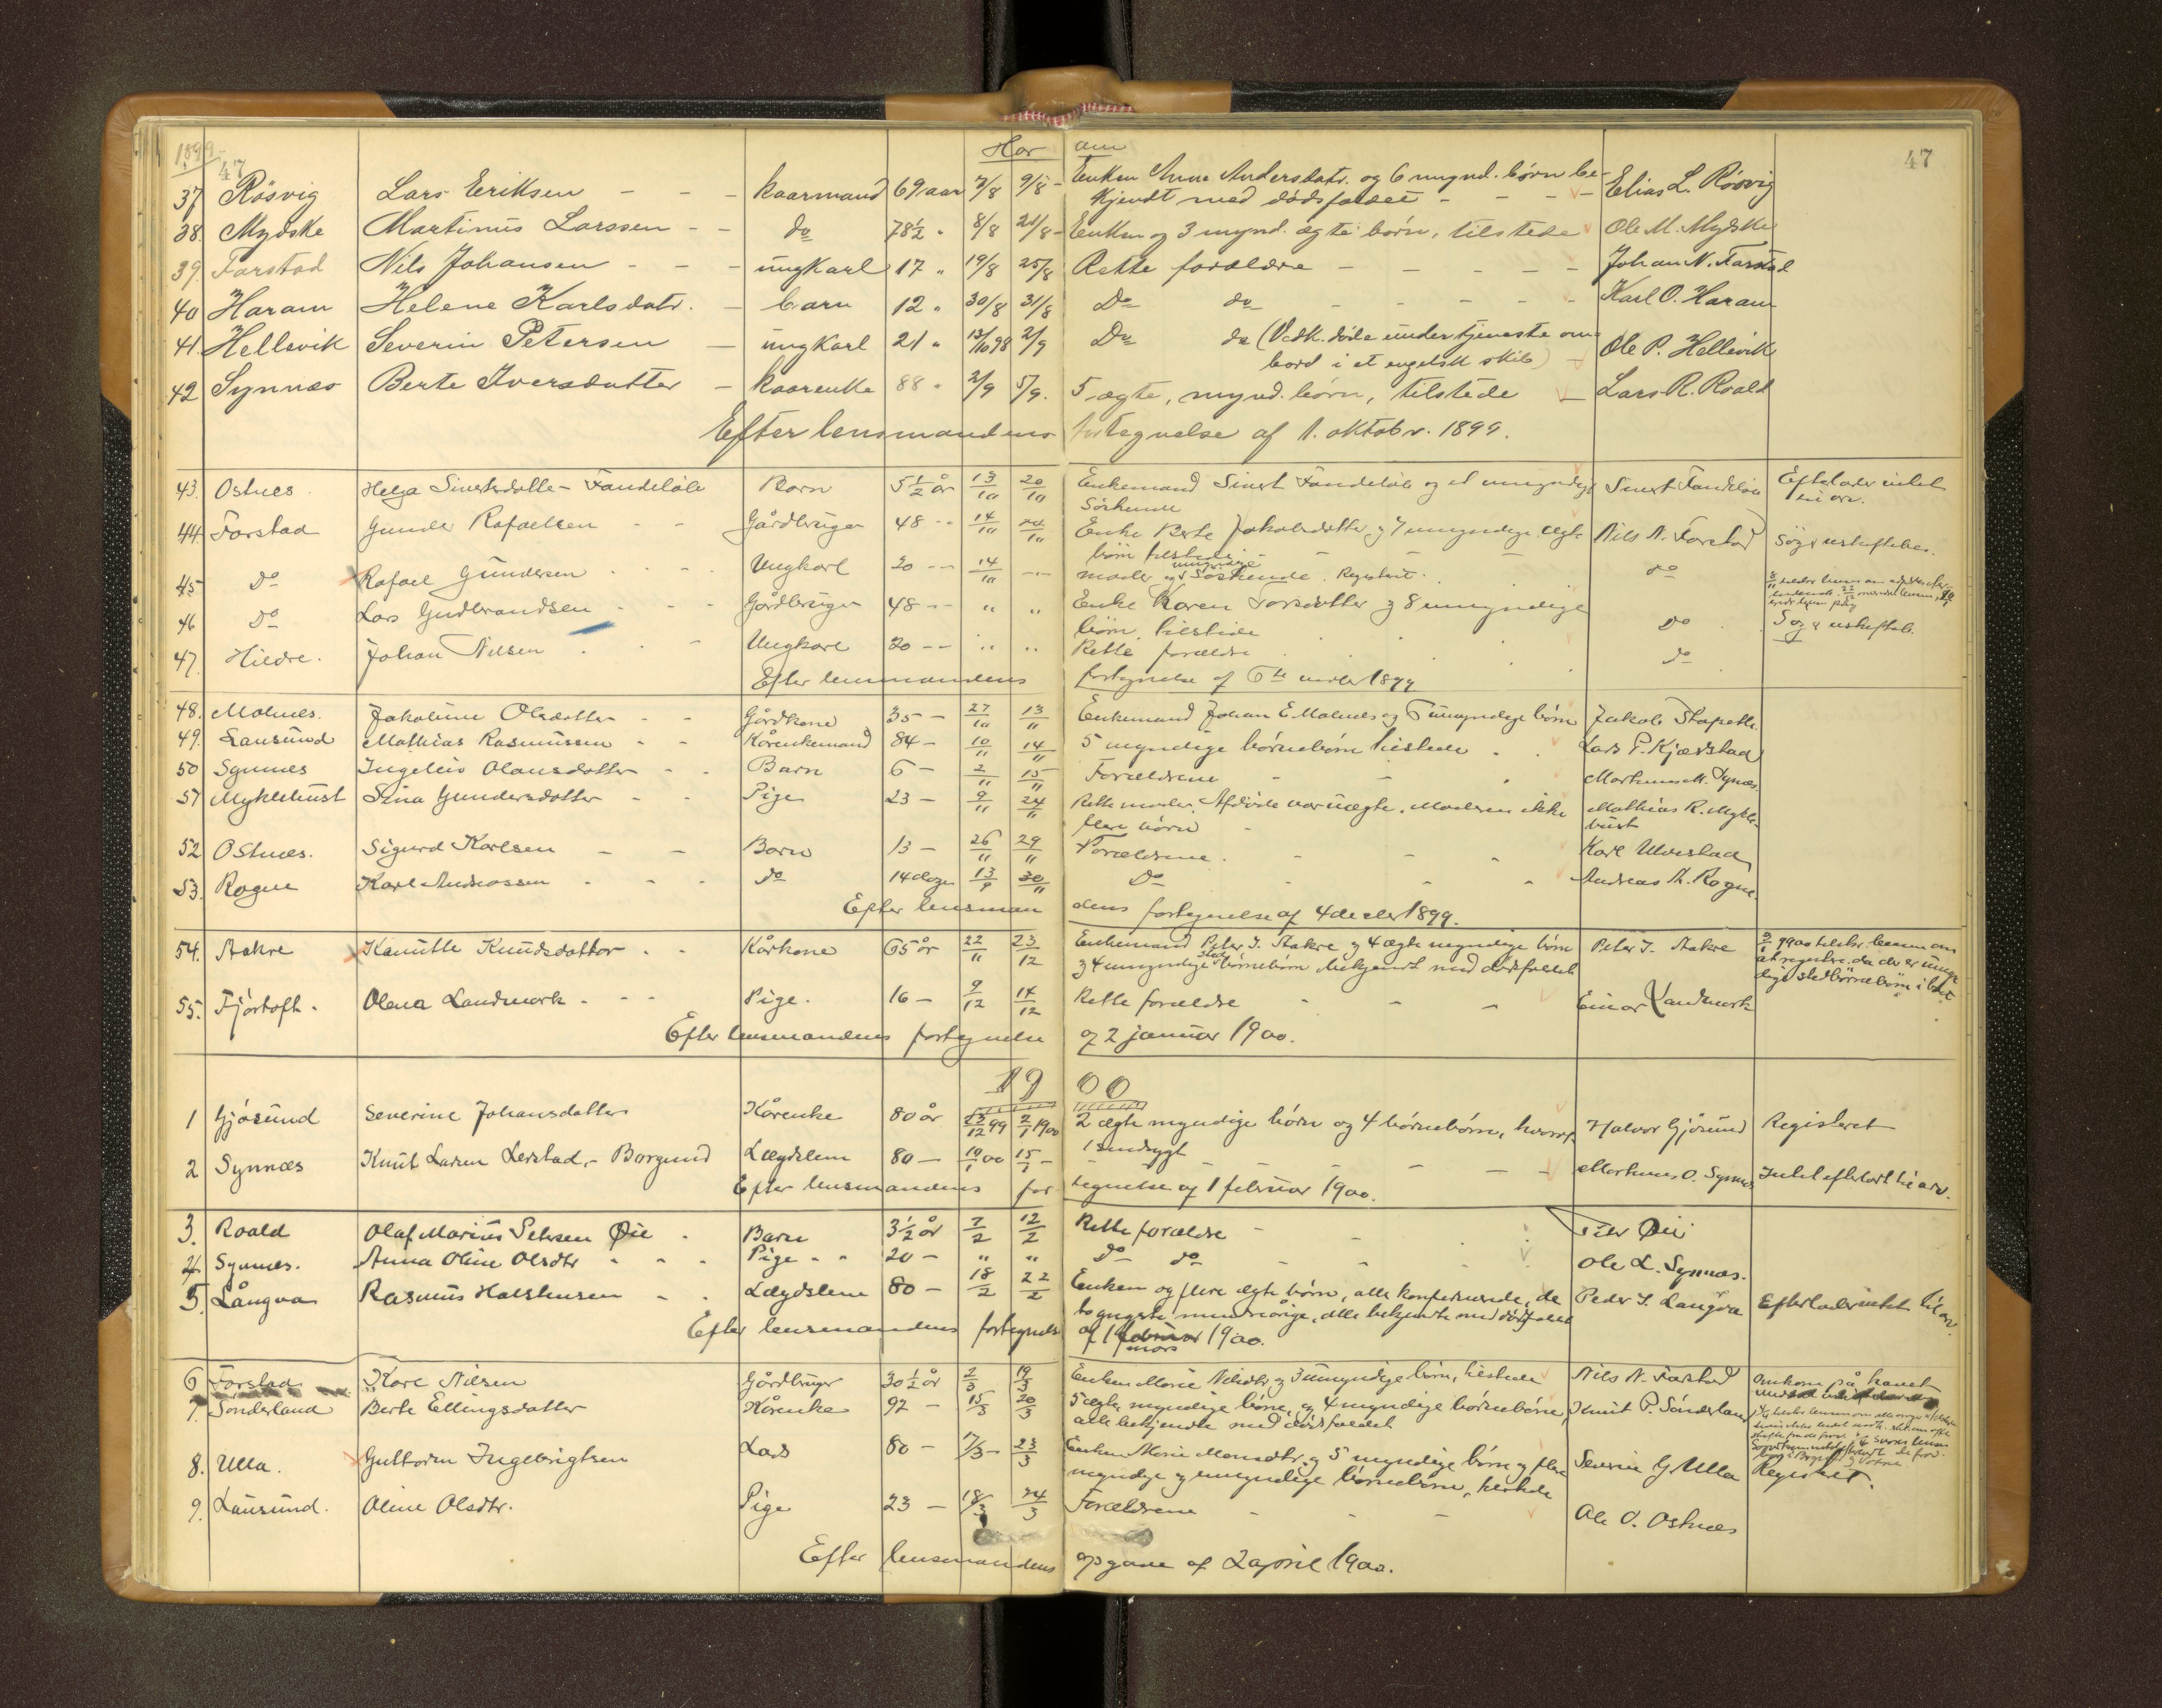 1899
47
Har am
47
37 Rösvig Lars Eriksen - - - kaarmand 69 aar 7/8 9/8 - Enken Anne Andersdatr. og 6 mynd. börn be-
kjendt med dödsfaldet - - - Elias L. Rösvig
38. Mydske Martinus Larssen - - do 78½ " 8/8 21/8 - Enken og 3 mynd. ægte börn, tilstede Ole M. Mydske
39. Farstad Nils Johansen - - - ungkarl 17 " 19/8 25/8 Rette forældre - - - - - Johan N. Farstad
40 Haram Helene Karlsdatr. - barn 12 " 30/8 31/8 Do do - - - - - Karl O. Haram
41. Hellevik Severin Petersen - ungkarl 21 " 13/10 98 2/9 Do do (Vedk. döde under tjeneste om-
bord i et engelsk skib) - Ole P. Hellevik
42 Synnæs Berte Iversdatter - kaarenke 88 " 2/9 5/9. 5 ægte, mynd. börn, tilstede - Lars R. Roald
Efter lensmandens fortegnelse af 1. oktobr. 1899.
43. Ostnes. Helga Sivertsdatter - Barn 5½ år 13/10 20/10 Enkemand Sivert og et umyndigt Sivert Efterlader intet
Söskende til arv.
44. Farstad Gunder Rafaelsen - - Gårdbruger 48 - - 14/10 24/10 Enke Berte Jakobsdatter og 7 umyndige ægte Nils N. Farstad Söger uskiftebev.
börn tilstede -
45 Do Rafael Gundersen Ungkarl 20 - - 14/10 - " - moder og umyndige Söskende. Registreret. do
46 Do Lars Gudbrandsen - - - Gårdbruger 48 - - " " Enke Karen Larsdatter og 8 umyndige
börn, tilstede Do Sög. uskifteb.
47. Hildre. Johan Nilsen Ungkarl 20 - - " " Rette forældre do
Efter lensmandens fortegnelse af 6te novbr 1899
48. Molnes. Jakobine Olsdatter - - Gårdkone 35 - 27/10 13/11 Enkemand Johan E. Molnes og 5 umyndige börn Jakob
49. Lausund Mathias Rasmussen - - Kårenkemand 84 - 10/11 14/11 5 myndige börnebörn tilstede Lars P. Kjærstad
50 Synnes Ingeleiv Olausdatter - - Barn 6 - 2/11 15/11 Forældrene - - Synnes
51 Myklebust Sina Gundersdatter - - Pige 23 - 9/11 24/11 Rette moder. Afdöde var uægte. Moderen ikke Mathias R. Mykle-
flere börn - bust
52 Ostnes. Sigurd Karlsen - - Barn 13 - 26/11 29/11 Forældrene. - - - Karl Ulvestad
53. Rogne Karl Andreassen - - - do 14 dage 13/9 30/11 Do - - Andreas A. Rogne.
Efter lensmandens fortegnelse af 4 decbr 1899.
54. Aakre Kanutte Knudsdatter - - Kårkone 65 år 22/11 23/12 Enkemand Peter J. Aakre og 4 ægte myndige börn Peter J. Aakre 3/1 1900 tilskr. lensm om
og 4 umyndige sted börnebörn bekjendt med dödsfaldet at registre. da der er umyn-
dige stedbörnebörn i boet
55. Fjörtoft. Olena Landmark - - - Pige. 16 - 9/12 14/12 Rette forældre - - Einar Landmark
Efter lensmandens fortegnelse af 2 januar 1900.
1900
1 Gjösund Severine Johansdatter Kårenke 80 år 23/12 99 2/1 1900 2 ægte myndige börn og 4 börnebörn, hvoraf Halvor Gjösund Registeret
1 sindsygt
2 Synnæs Knut Larsen Lerstad, - Borgund Lægdslem 80 - 10/1 00 15/1 - - - - - - O. Synnes Intet efterladt til arv.
Efter lensmandens fortegnelse af 1 februar 1900.
3. Roald Olaf Marius Petersen Öie - Barn 3½ år 7/2 12/2 Rette forældre - - Peter Öie
4. Synnes. Anna Oline Olsdtr - - - Pige - " 20 - " " do do - - Ole L. Synnæs.
5. Långva Rasmus - - Lægdslem 80 - 18/2 22/2 Enken og flere ægte börn, alle konfirmerede, de Peder J. Langva Efterlader intet til arv.
to yngste mindreårige, alle bekjendte med dödsfaldet
Efter lensmandens fortegnelse af 1 februar mars 1900.
6 Farstad Kare Nilsen Gårdbruger 30½ år 2/3 19/3 Enken Marie Nilsdtr og 3 umyndige börn, tilstede Nils N. Farstad Omkom på havet
7. Sönderland Berte Ellingsdatter Kårenke 92 - 15/3 20/3 5 ægte myndige börn, og 4 myndige börnebörn, Knut P. Sönderland
alle bekjendte med dödsfaldet
8. Ulla. Guttorm Ingebrigtsen Lods 80 - 17/3 - 23/3 Enken Marie Monsdtr. og 5 myndige börn og flere Severin G Ulla Registret.
myndige og umyndige börnebörn, tilstede
9. Lausund. Oline Olsdtr. Pige 23 - 18/3 24/3 Forældrene - - - Ole O. Ostnes
Efter lensmandens opgave af 2 april 1900.